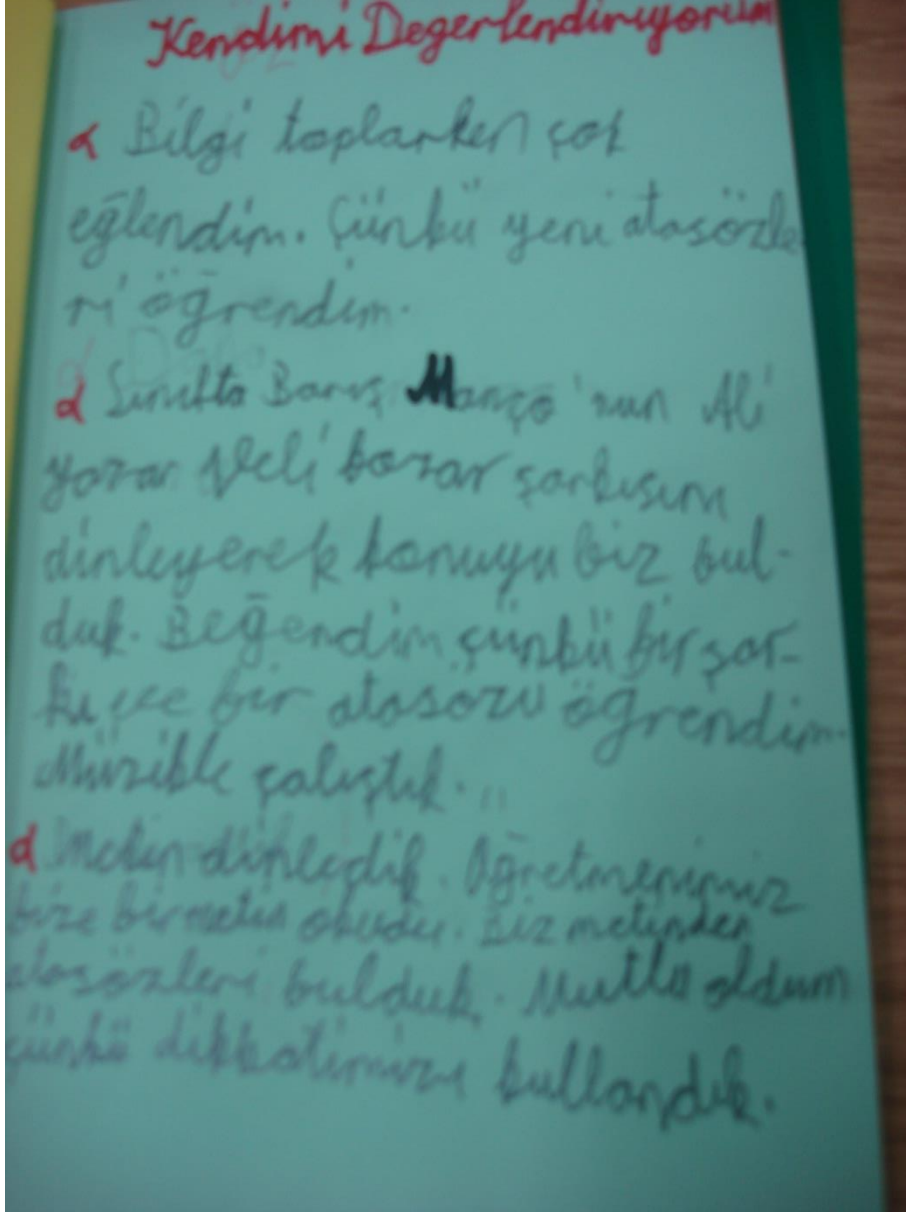 Kendimi Değerlendiriyorum
Bilgi toplarken çok
eğlendim. Çünkü yeni atasözle
ri öğrendim.
Sınıfta Barış Manço'nun Ali
yazar Veli bozar şarkısını
dinleyerek konuyu biz bul-
duk. Beğendim çünkü bir şar-
kı bir atasözü öğrendim.
Müzikle çalıştık.
Metin dinledik. Öğretmenimiz
bize bir metin okudu. Biz metinden
atasözleri bulduk. Mutlu oldum
çünkü dikkatimizi kullandık.